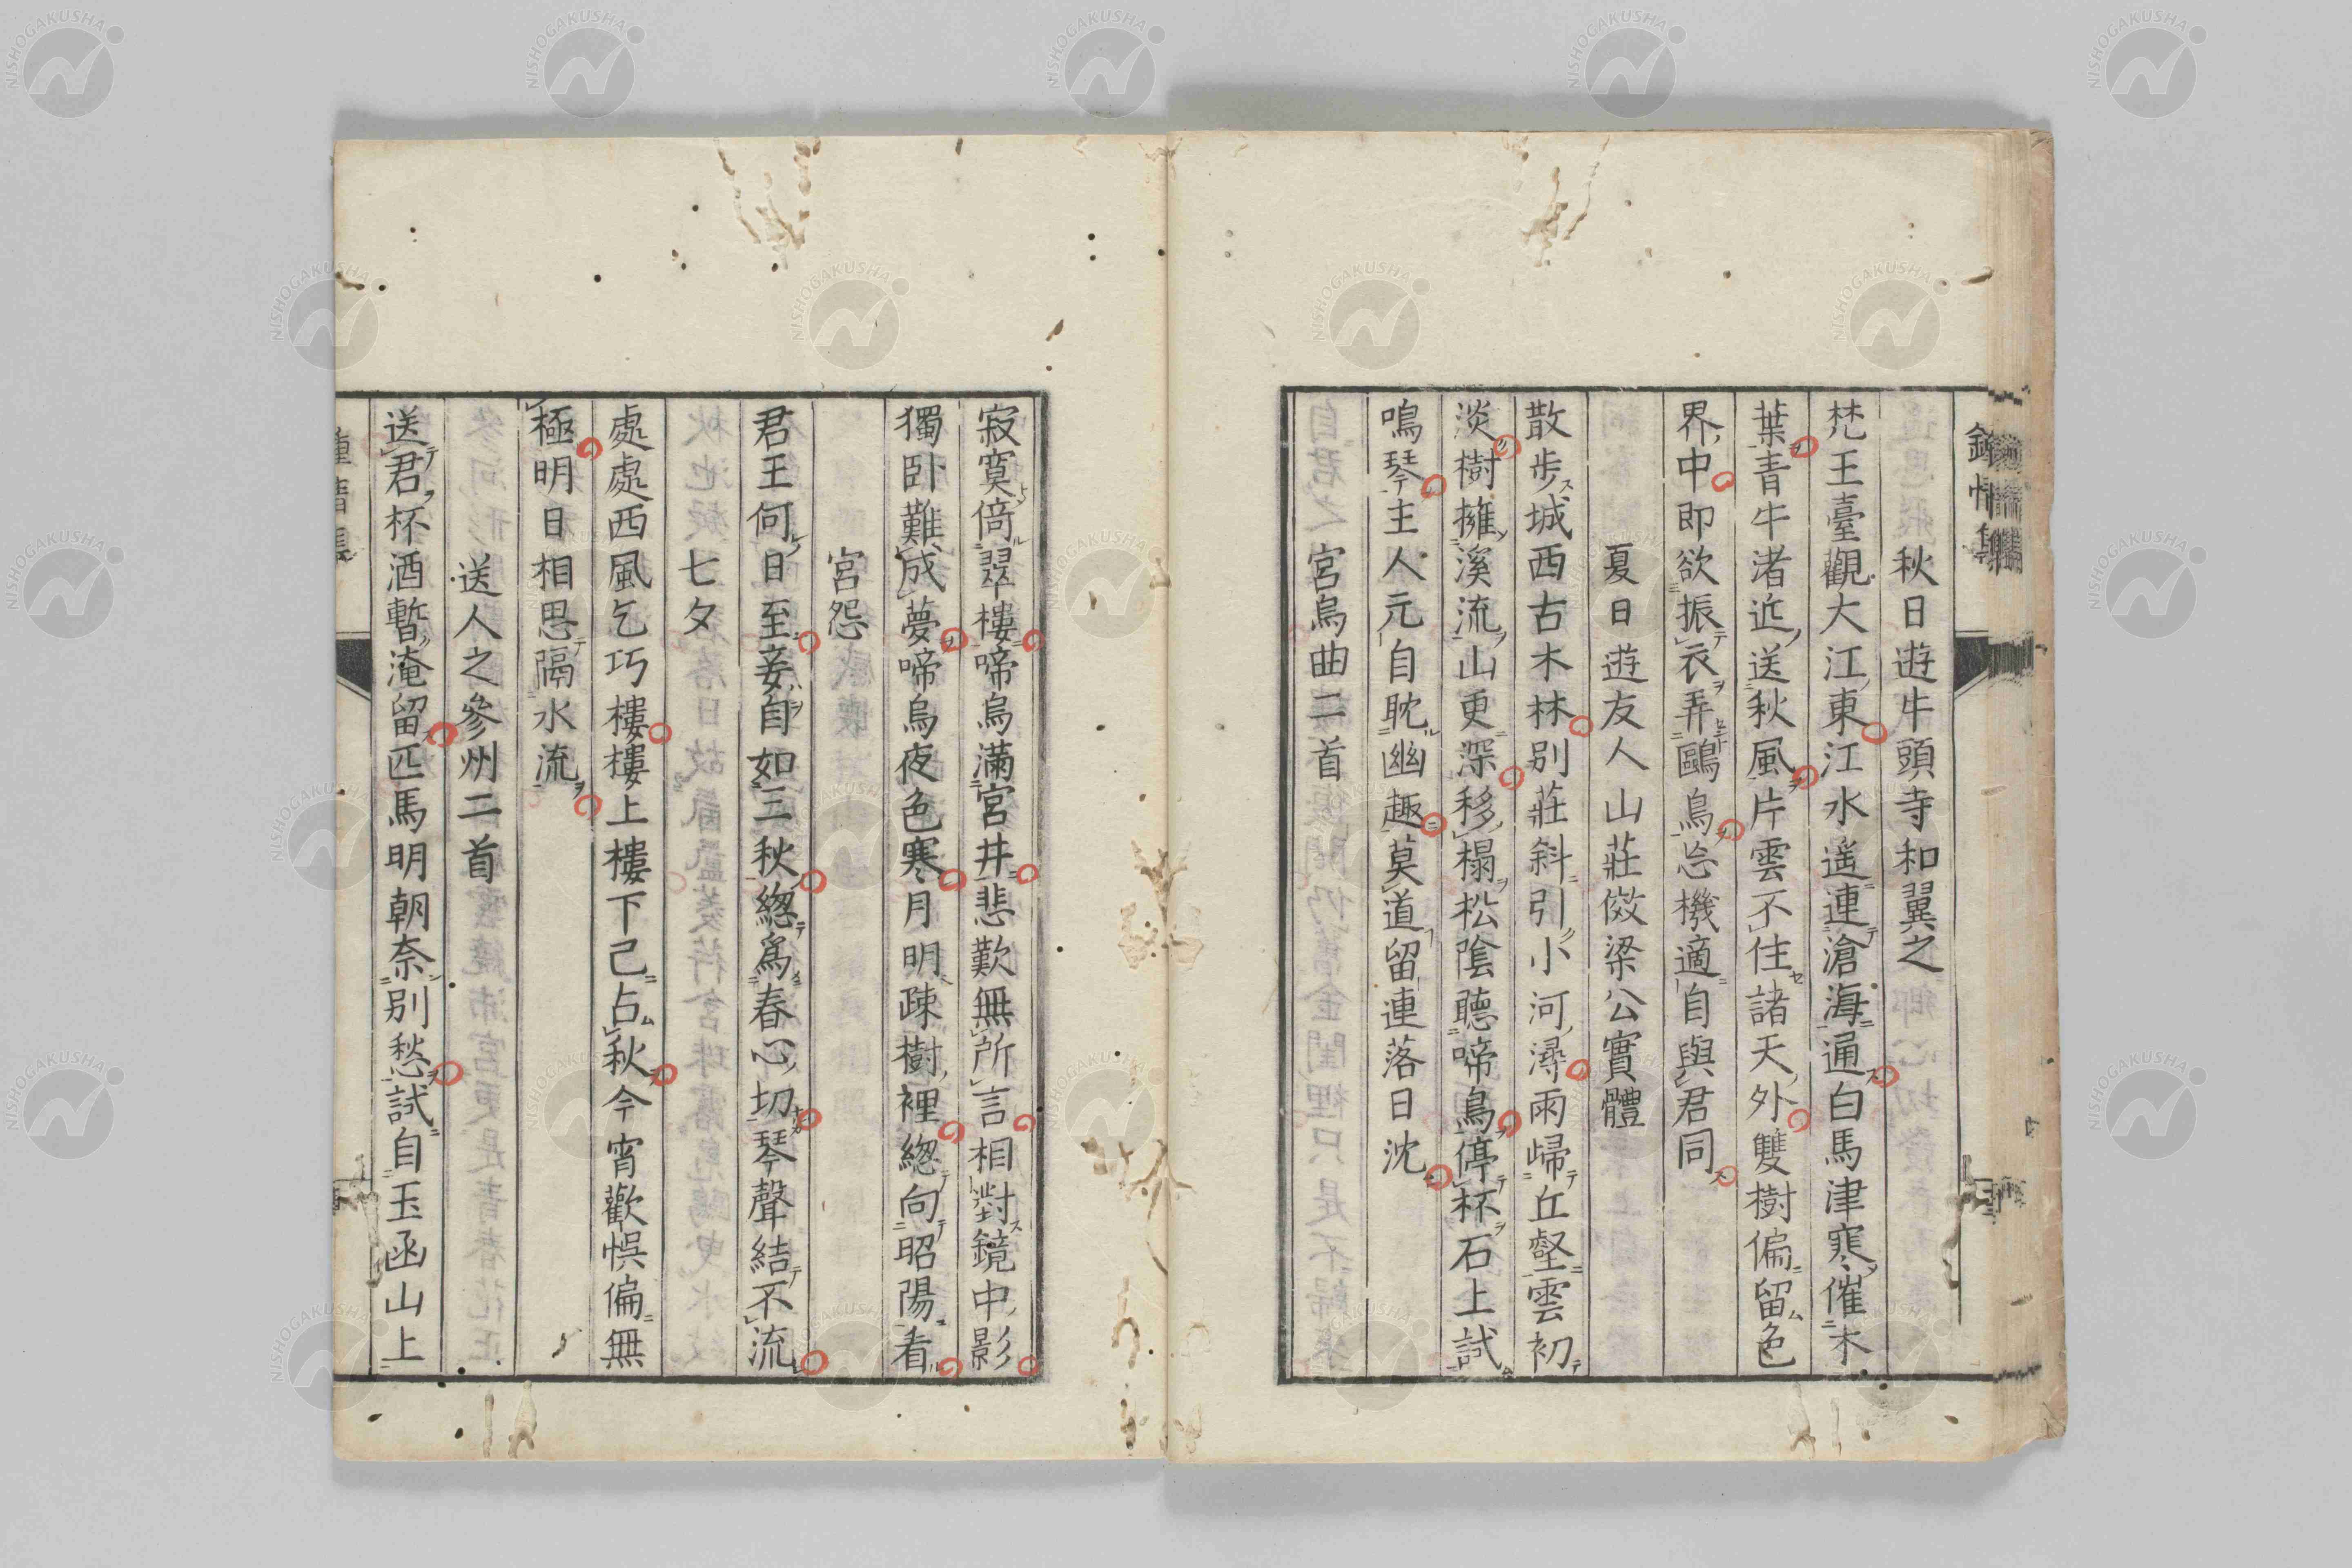 秋日遊牛頭寺和翼之
梵王臺觀大江東江水遥連滄海通白馬津寒催木
葉青牛渚近送秋風片雲不住諸天外雙樹偏留色
界中即欲振衣弄鷗鳥忘機適自與君同
夏日遊友人山莊倣梁公實體
散步城西古木林別莊斜引小河潯雨歸丘壑雲初
淡樹擁溪流山更深移榻松陰聽啼鳥停杯石上試
鳴琴主人元自耽幽趣莫道留連落日沈
宮烏曲二首
寂寞倚翠樓啼烏滿宮井悲歎無所言相對鏡中影
獨卧難成夢啼烏夜色寒月明疎樹裡緫向昭陽看
宮怨
君王何日至妾自如三秋緫爲春心切琴聲結不流
七夕
處處西風乞巧樓樓上樓下已占秋今宵歡悞偏無
極明日相思隔水流
送人之參州二首
送君杯酒暫淹留匹馬明朝奈別愁試自玉函山上
NISHOGAKUSHA